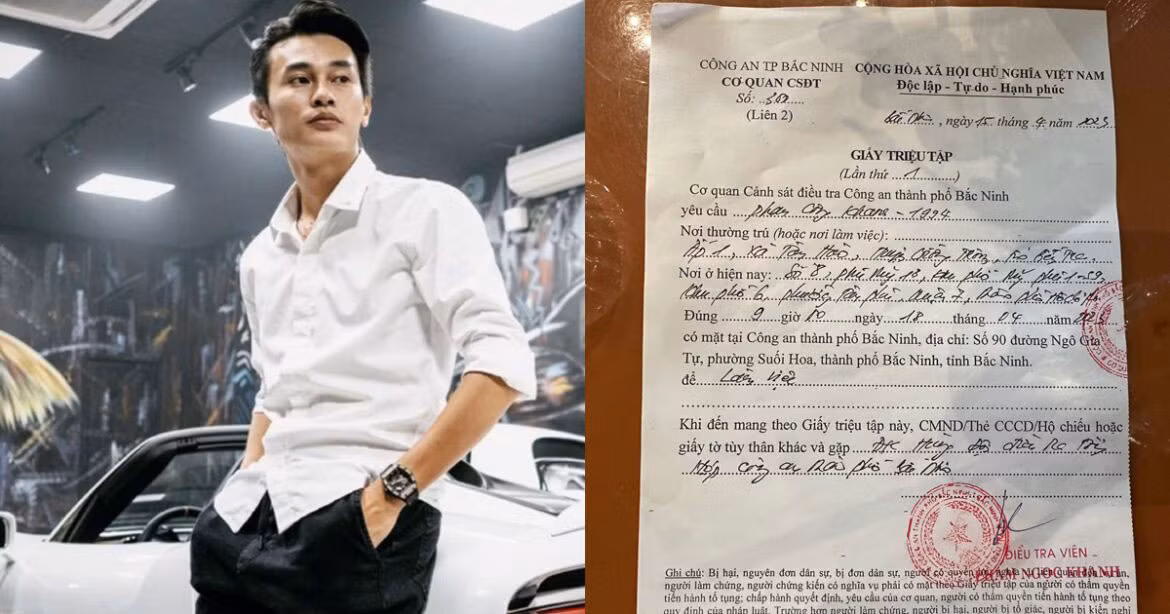 CÔNG AN TP BẮC NINH
CƠ QUAN CSĐT
Số:
(Liên 2)
CỘNG HÒA XÃ HỘI CHỦ NGHĨA VIỆT NAM
Độc lập - Tự do - Hạnh phúc
ngày 15 tháng 4 năm 2023
GIẤY TRIỆU TẬP
(Lần thứ 1)
Cơ quan Cảnh sát điều tra Công an thành phố Bắc Ninh
yêu cầu Phan Công Khanh - 1994
Nơi thường trú (hoặc nơi làm việc):
Ấp 1, xã
Nơi ở hiện nay: Số 8,
Khu phố 6, phường Tân Phú, Quận 7,
Đúng 9 giờ 00 ngày 18 tháng 04 năm 2023
có mặt tại Công an thành phố Bắc Ninh, địa chỉ: Số 90 đường Ngô Gia
Tự, phường Suối Hoa, thành phố Bắc Ninh, tỉnh Bắc Ninh.
để Làm việc
Khi đến mang theo Giấy triệu tập này, CMND/Thẻ CCCD/Hộ chiếu hoặc
giấy tờ tùy thân khác và gặp
công an
ĐIỀU TRA VIÊN
PHẠM NGỌC KHANH
Ghi chú: Bị hại, nguyên đơn dân sự, bị đơn dân sự, người có quyền
người làm chứng, người chứng kiến có nghĩa vụ phải có mặt theo Giấy triệu tập của người có thẩm quyền
tiến hành tố tụng; chấp hành quyết định, yêu cầu của cơ quan, người có thẩm quyền tiến hành tố tụng theo
quy định của pháp luật. Trường hợp người làm chứng, người bị hại, người bị tố giác, người bị kiến nghị